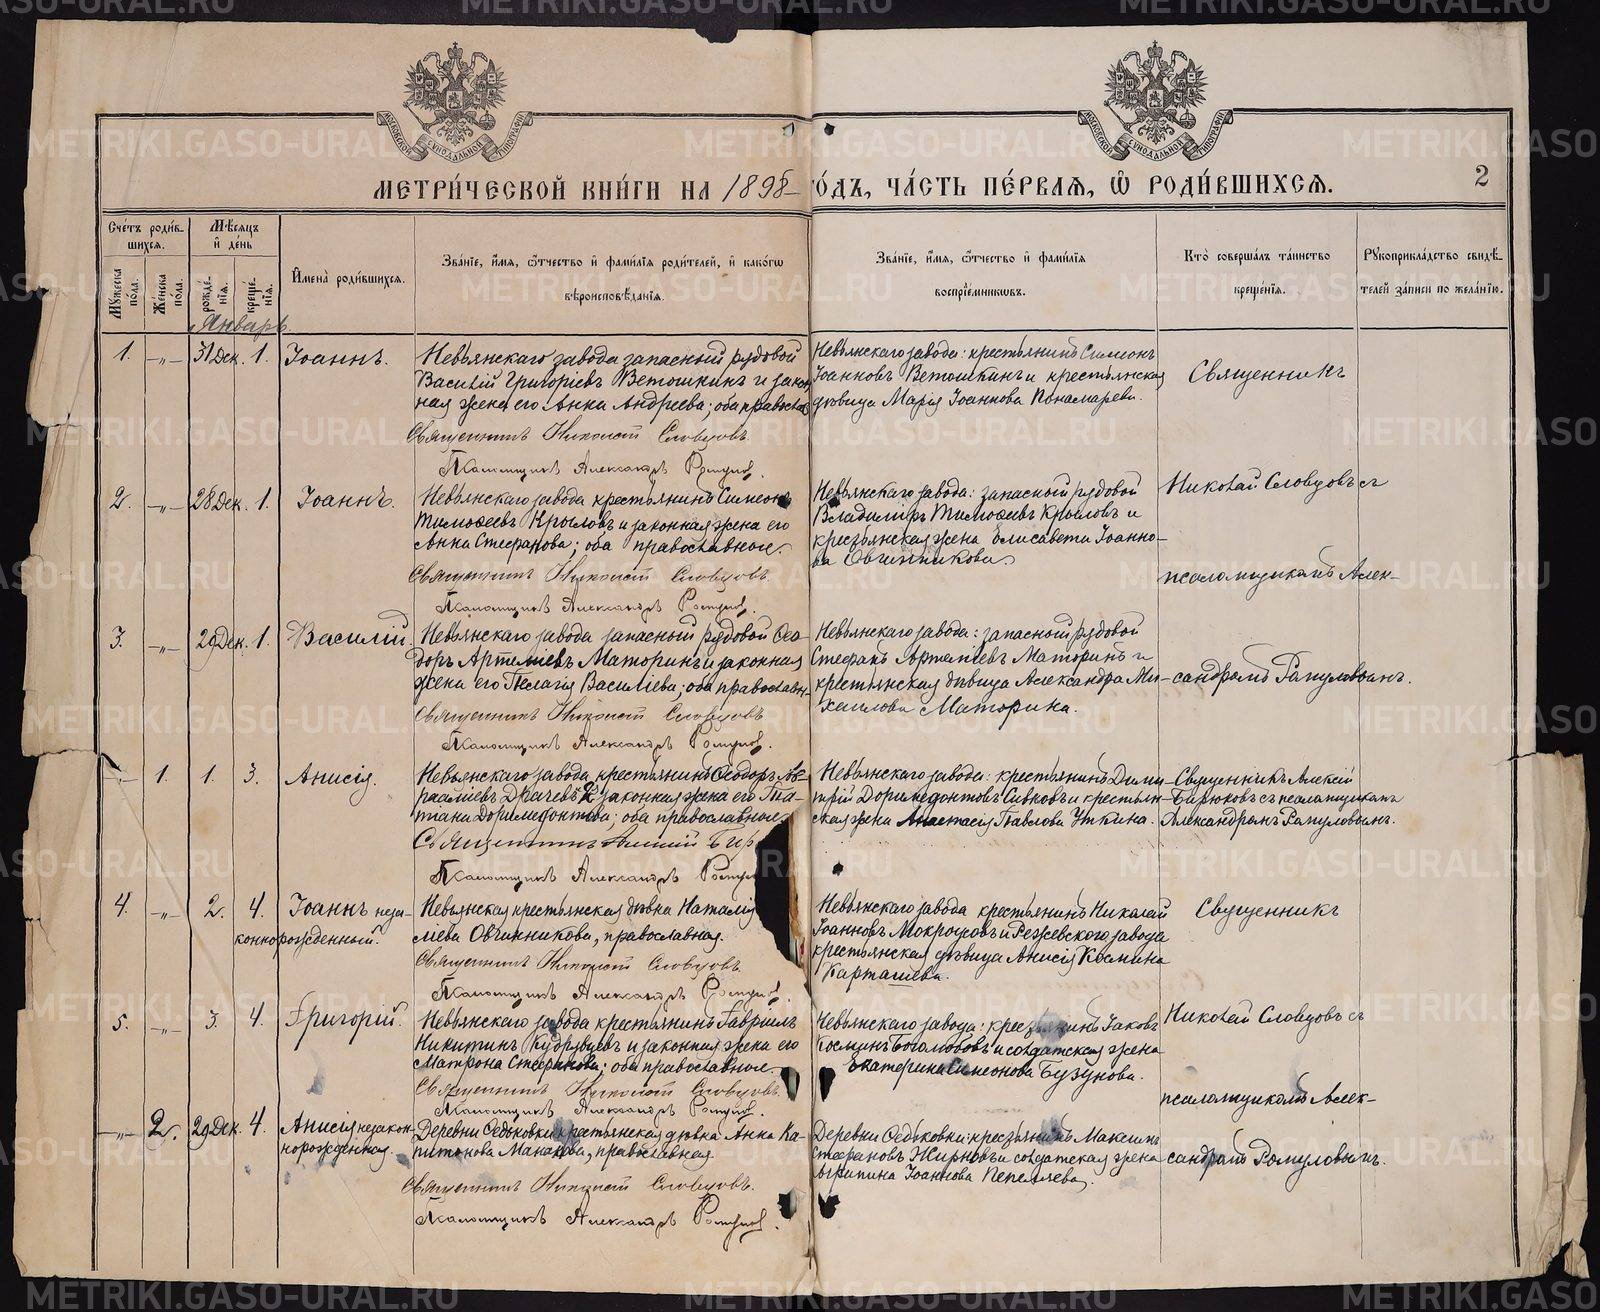 МОСКОВСКОЙ СѴНОДАЛЬНОЙ ТИПОГРАФІИ
МОСКОВСКОЙ СѴНОДАЛЬНОЙ ТИПОГРАФІИ
МЕТРИ́ЧЕСКОЙ КНИ́ГИ НА 1898 ГО́ДЪ, ЧА́СТЬ ПЕ́РВАѦ, Ѡ҆ РОДИ́ВШИХСѦ.
2
Сче́тъ роди́в-
шихсѧ.
Мѣ́сяцъ
и҆ де́нь
Мꙋ́жеска
по́ла.
Же́нска
по́ла.
рожде́-
нїѧ.
креще́-
нїѧ.
И҆мена̀ роди́вшихсѧ.
Зва́нїе, и҆́мѧ, ѻ҆́тчество и҆ фами́лїѧ роди́телей, и҆ како́гѡ
вѣроисповѣ́данїѧ.
Зва́нїе, и҆́мѧ, ѻ҆́тчество и҆ фами́лїѧ
воспрїе́мниковъ.
Кто̀ соверша́лъ та́инство
креще́нїѧ.
Рꙋкоприкла́дство свидѣ́-
телей за́писи по жела́нїю.
Январь
1. -„- 31 Дек. 1. Іоаннъ.
Невьянскаго завода запасный рядовой
Василій Григоріевъ Ветошкинъ и закон
ная жена его Анна Андреева; оба православ
Священникъ Николай Словцовъ
Псаломщикъ Александръ Ромулов.
Невьянскаго завода: крестьянинъ Симеонъ
Іоанновъ Ветошкинъ и крестьянская
дѣвица Марія Іоаннова Пономарева.
Священникъ
2. -„- 28 Дек. 1. Іоаннъ.
Невьянскаго завода крестьянинъ Симеонъ
Тимофеевъ Крыловъ и законная жена его
Анна Стефанова; оба православные.
Священникъ Николай Словцовъ.
Псаломщикъ Александръ Ромулов.
Невьянскаго завода: запасной рядовой
Владиміръ Тимофеевъ Крыловъ и
крестьянская жена Елисавета Іоанно-
ва Овчинникова.
Николай Словцовъ съ
псаломщикомъ Алек-
3. -„- 29 Дек. 1. Василій.
Невьянскаго завода запасный рядовой Ѳео-
доръ Артеміевъ Маторинъ и законная
жена его Пелагія Василіева; оба православн.
Священникъ Николай Словцовъ
Псаломщикъ Александръ Ромулов.
Невьянскаго завода: запасный рядовой
Стефанъ Артеміевъ Маторинъ и
крестьянская дѣвица Александра Ми-
хаилова Маторина.
сандромъ Ромуловымъ.
-„- 1. 1. 3. Анисія.
Невьянскаго завода крестьянинъ Ѳеодоръ Ав-
рааміевъ Драчевъ и законная жена его Та-
тіана Доримедонтова; оба православные
Священникъ Алексій Бир
Псаломщикъ Александръ Ромул
Невьянскаго завода: крестьянинъ Дими-
трій Доримедонтовъ Сивковъ и крестьян-
ская жена Анастасія Павлова Уткина.
Священникъ Алексій
Бирюковъ съ псаломщикомъ
Александромъ Ромуловымъ.
4. -„- 2. 4. Іоаннъ неза-
коннорожденный.
Невьянская крестьянская дѣвка Наталія
ліева Овчинникова, православная.
Священникъ Николай Словцовъ.
Псаломщикъ Александръ Ромулов.
Невьянскаго завода крестьянинъ Николай
Іоанновъ Мокроусовъ и Режевского завода
крестьянская дѣвица Анисія Космина
Карташева.
Священникъ
5. -„- 3. 4. Григорій.
Невьянскаго завода крестьянинъ Гавріилъ
Никитинъ Кудрявцевъ и законная жена его
Матрона Стефанова; оба православные.
Священникъ Николай Словцовъ.
Псаломщикъ Александръ Ромулов.
Невьянскаго завода: крестьянинъ Іаковъ
Косминъ Боголюбовъ и солдатская жена
Екатерина Симеонова Бузунова.
Николай Словцовъ съ
псаломщикомъ Алек-
-„- 2. 29 Дек. 4. Анисія незакон-
норожденная.
Деревни Ѳедьковки крестьянская дѣвка Анна Ка-
питонова Макарова, православная.
Священникъ Николай Словцовъ.
Псаломщикъ Александръ Ромулов.
Деревни Ѳедьковки: крестьянинъ Максимъ
Стефановъ Жирновъ и солдатская жена
Агрипина Іоаннова Пепеляева.
сандромъ Ромуловымъ.
METRIKI.GASO-URAL.RU